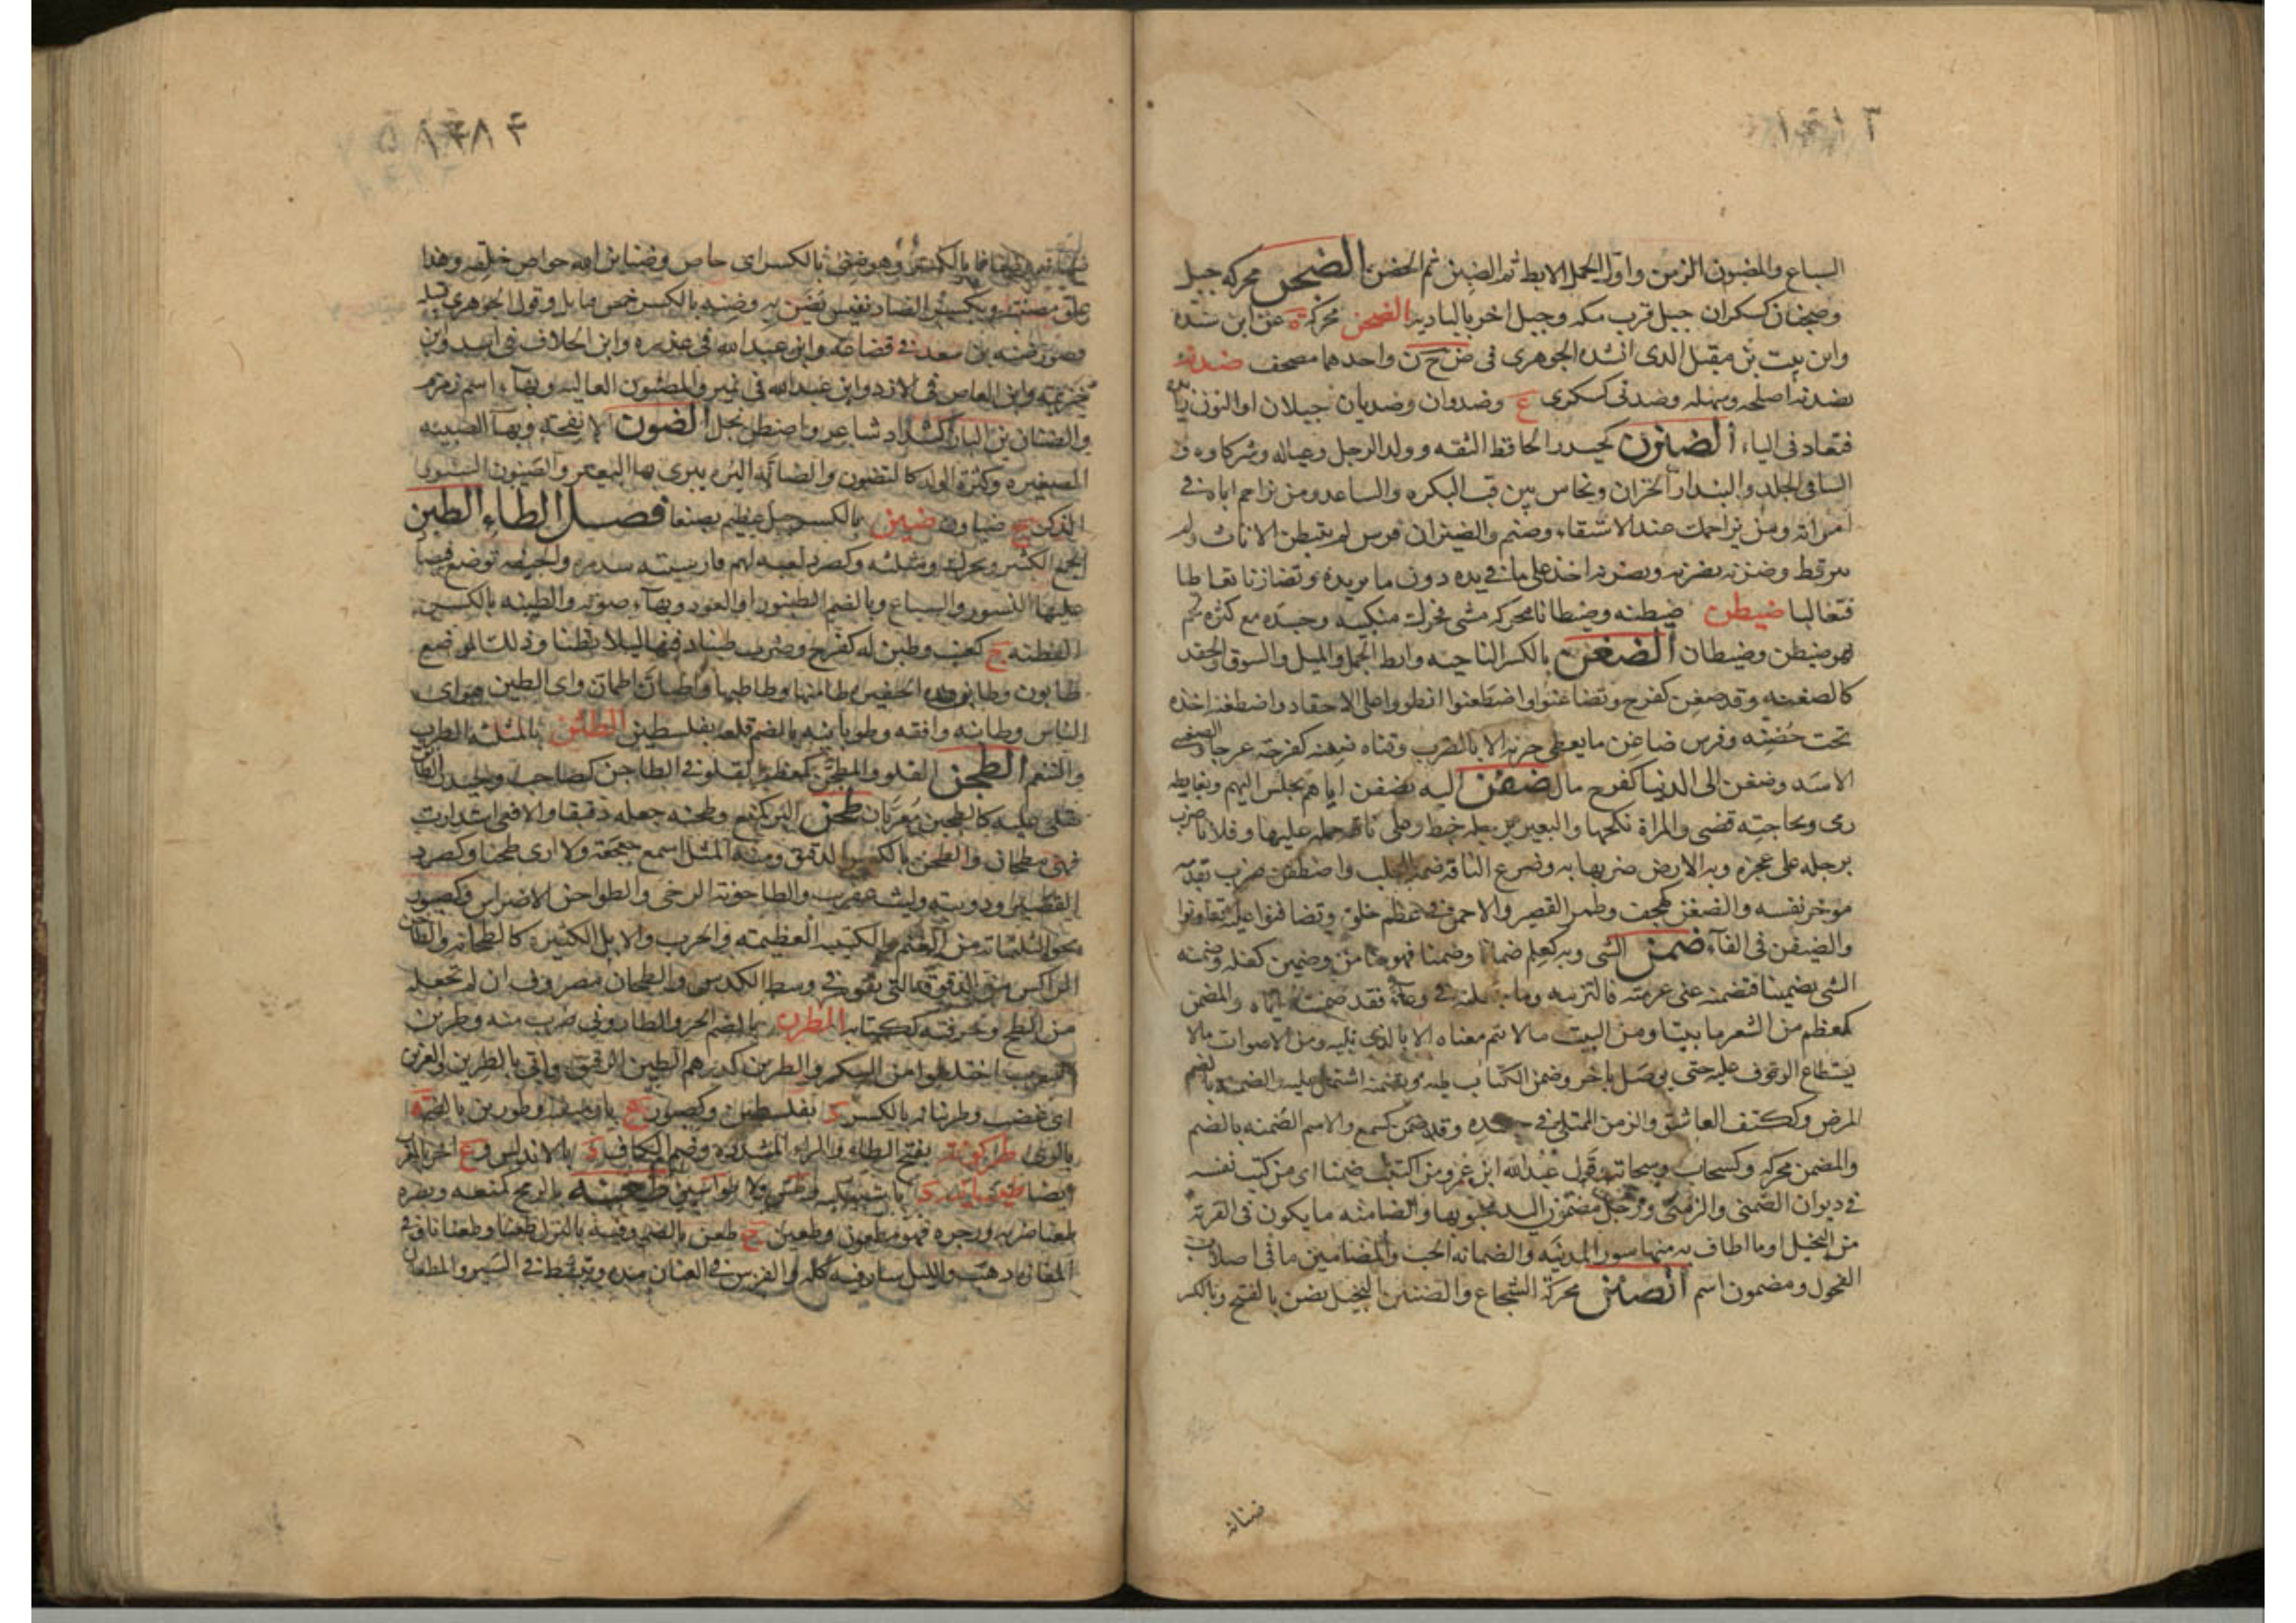 السباع والمضبون الزمن واول الحمل الابط ثم الضبن ثم الحضن الضجن محركة جبل
وضجنان كسكران جبل قرب مكه وجبل اخر بالباديه الضحن محركة ة عن ابن سيده
وابن بيت بن مقبل الذى انشده الجوهرى فى ض ح ن واحدهما مصحف ضدنه
يضدنه اصلحه وسهله وضدنى كسكرى ع وضدوان وضديان جبيلان او النون
فتعاد فى الياء الضيزن كحيدر الحافظ الثقه وولد الرجل وعياله وشركاوه و
الساقى الجلد والبندار الخزان ونحاس بين قب البكره والساعد ومن تزاحم اباه فى
امراته ومن يزاحمك عند الاستقاء وصنم والضيزنان فرس لم يتبطن الاناث ولم
ينز قط وضزنه يضزنه ويضزنه اخذ على ما فى يده دون ما يريده وتضازنا تعاطيا
فتغالبا ضيطن ضيطنه وضيطانا محركه مشى فحرك منكبيه وجسده مع كثرة لحم
فهو ضيطن وضيطان الضغن بالكسر الناحيه وابط الجمل والميل والشوق والحقد
كالضغينه وقد ضغن كفرح وتضاغنوا واضطغنوا انطووا على الاحقاد واضطغنه اخذه
تحت حضنه وفرس ضاغن ما يعطى جريه الا بالضرب وقناه ضغنه كفرحه عرجا والضغينى
الاسد وضغن الى الدنيا كفرح مال ضفن اليه يضفن اياهم يجلس اليهم وبغايطه
رمى وبحاجته قضى والمراة نكحها والبعير برجله خبط وعلى ناقته حمله عليها وفلانا ضرب
برجله على عجزه وبه الارض ضربها به وضرع الناقه ضمه للحلب واضطفن ضرب بقدمه
موخر نفسه والضفن كهجف وطمر القصير والاحمق فى عظم خلق وتضافنوا عليه تعاونوا
والضيفن فى الفآء ضمن الشى وبه كعلم ضمانا وضمنا فهو ضامن وضمين كفله وضمنه
الشى تضمينا فتضمنه عنى غرمته فالتزمه وما جعلته فى وعاء فقد ضمنته اياه والمضمن
كمعظم من الشعر ما بيتا ومن البيت مالا يتم معناه الا بالذى يليه ومن الاصوات مالا
يستطاع الوقوف عليه حتى يوصل باخر وضمن الكتاب طيه وتضمنه اشتمل عليه والضمنه بالضم
المرض وككتف العاشق والزمن المبتلى فى جسده وقد ضمن كسمع والاسم الضمنه بالضم
والضمن محركه وكسحاب وسحابة وقول عبدالله ابن عمرو من اكتتب ضمنا اى من كتب نفسه
فى ديوان الضمنى والزمنى ورجل مضمون اليد مخبونها والضامنه ما يكون فى القرية
من النخيل او ما اطاف به منها سور المدينه والضمانه الحب والمضامين ما فى اصلاب
الفحول ومضمون اسم الضنن محركة الشجاع والضنين البخيل يضن بالفتح وبالكسر
ضنانة
وهو ضنى بالكسر اى خاص وضنائن الله خواص خلقه وهذا
علق مضنته وبكسر الضاد نفيس يضن به وضنه بالكسر خمس قبايل وقول الجوهرى قبيله
قصور ضنه بن سعد فى قضاعه وابن عبدالله فى عذره وابن الحلاف فى اسد وابن
خزيمه وابن العاص فى الازد وابن عبدالله فى نمير والمضنون الغاليه وبهآء اسم زمزم
والضنان بن المبارك كشداد شاعر واضطن بخل الضون الانفحة وبهآ الصبيه
الصغيره وكثرة الولد كالتضون والضانه البره يبرى بها البعير والضيون السنور
الذكر ج ضياون ضين بالكسر جبل عظيم بصنعا فصل الطاء الطبن
الجمع الكثير ويحرك ومثلثه وكصرد لعبه لهم فارسيته سدره والجيفه توضع فيصاد
عليها النسور والسباع وبالضم الطنبور او العود وبهآء صوته والطبنه بالكسر
الفطنه ج كعنب وطبن له كفرح وضرب طبنا دفنها ليلا تطفا وذلك الموضع
طابون وطابن هذه الحفيره طامنها وطاطيها واطبان اطمان واى الطبن هو اى
الناس وطابنه وافقه وطوبانيه بالضم قلعه بفلسطين الطثن بالمثلثه الطرب
والتنعم الطجن القلو والمطجن كمعظم المقلو فى الطاجن كصاحب وحيدر
يقلى عليه كالطجين معربان طحن البر كمنع وطحنه جعله دقيقا والافعى استدارت
فهى مطحان والطحن بالكسر الدقيق ومنه المثل اسمع جعجعة ولا ارى طحنا وكصرد
القصير ودويبه وليث عفرين والطاحونة الرحى والطواحن الاضراس وكصبور
نحو الثلثمائة من الغنم والكتيبه العظيمه والحرب والابل الكثيره كالطحانه والطاحن
الراكس من الدقوقه التى تقوم فى وسط الكدس والطحان مصروف ان لم تجعله
من الطح وحرفته ككتابه الطرن بالضم الخز والطارونى ضرب منه وطرين
الشرب اختلطوا من السكر والطرين كدرهم الطين الرقيق واتى بالطرين والعرين
اى غضب وطرنانه بالكسر د بفلسطين وكصبور ع بارمينيه وطورين بالضم ة
بالرى طركونة بفتح الطاء والراء المشددة وضم الكاف د بالاندلس وع اخر بالمغرب
ايضا طيسانيه د باشبيليه وطس ولا طواسين طعنه بالرمح كمنعه ونصره
طعنا ضربه وزجره فهو مطعون وطعين ج طعن بالضم وفيه بالقول طعنا وطعنانا وفى
المفازه ذهب والليل سار فيه كله والفرس فى العنان مده وتبسط فى السير والمطعان